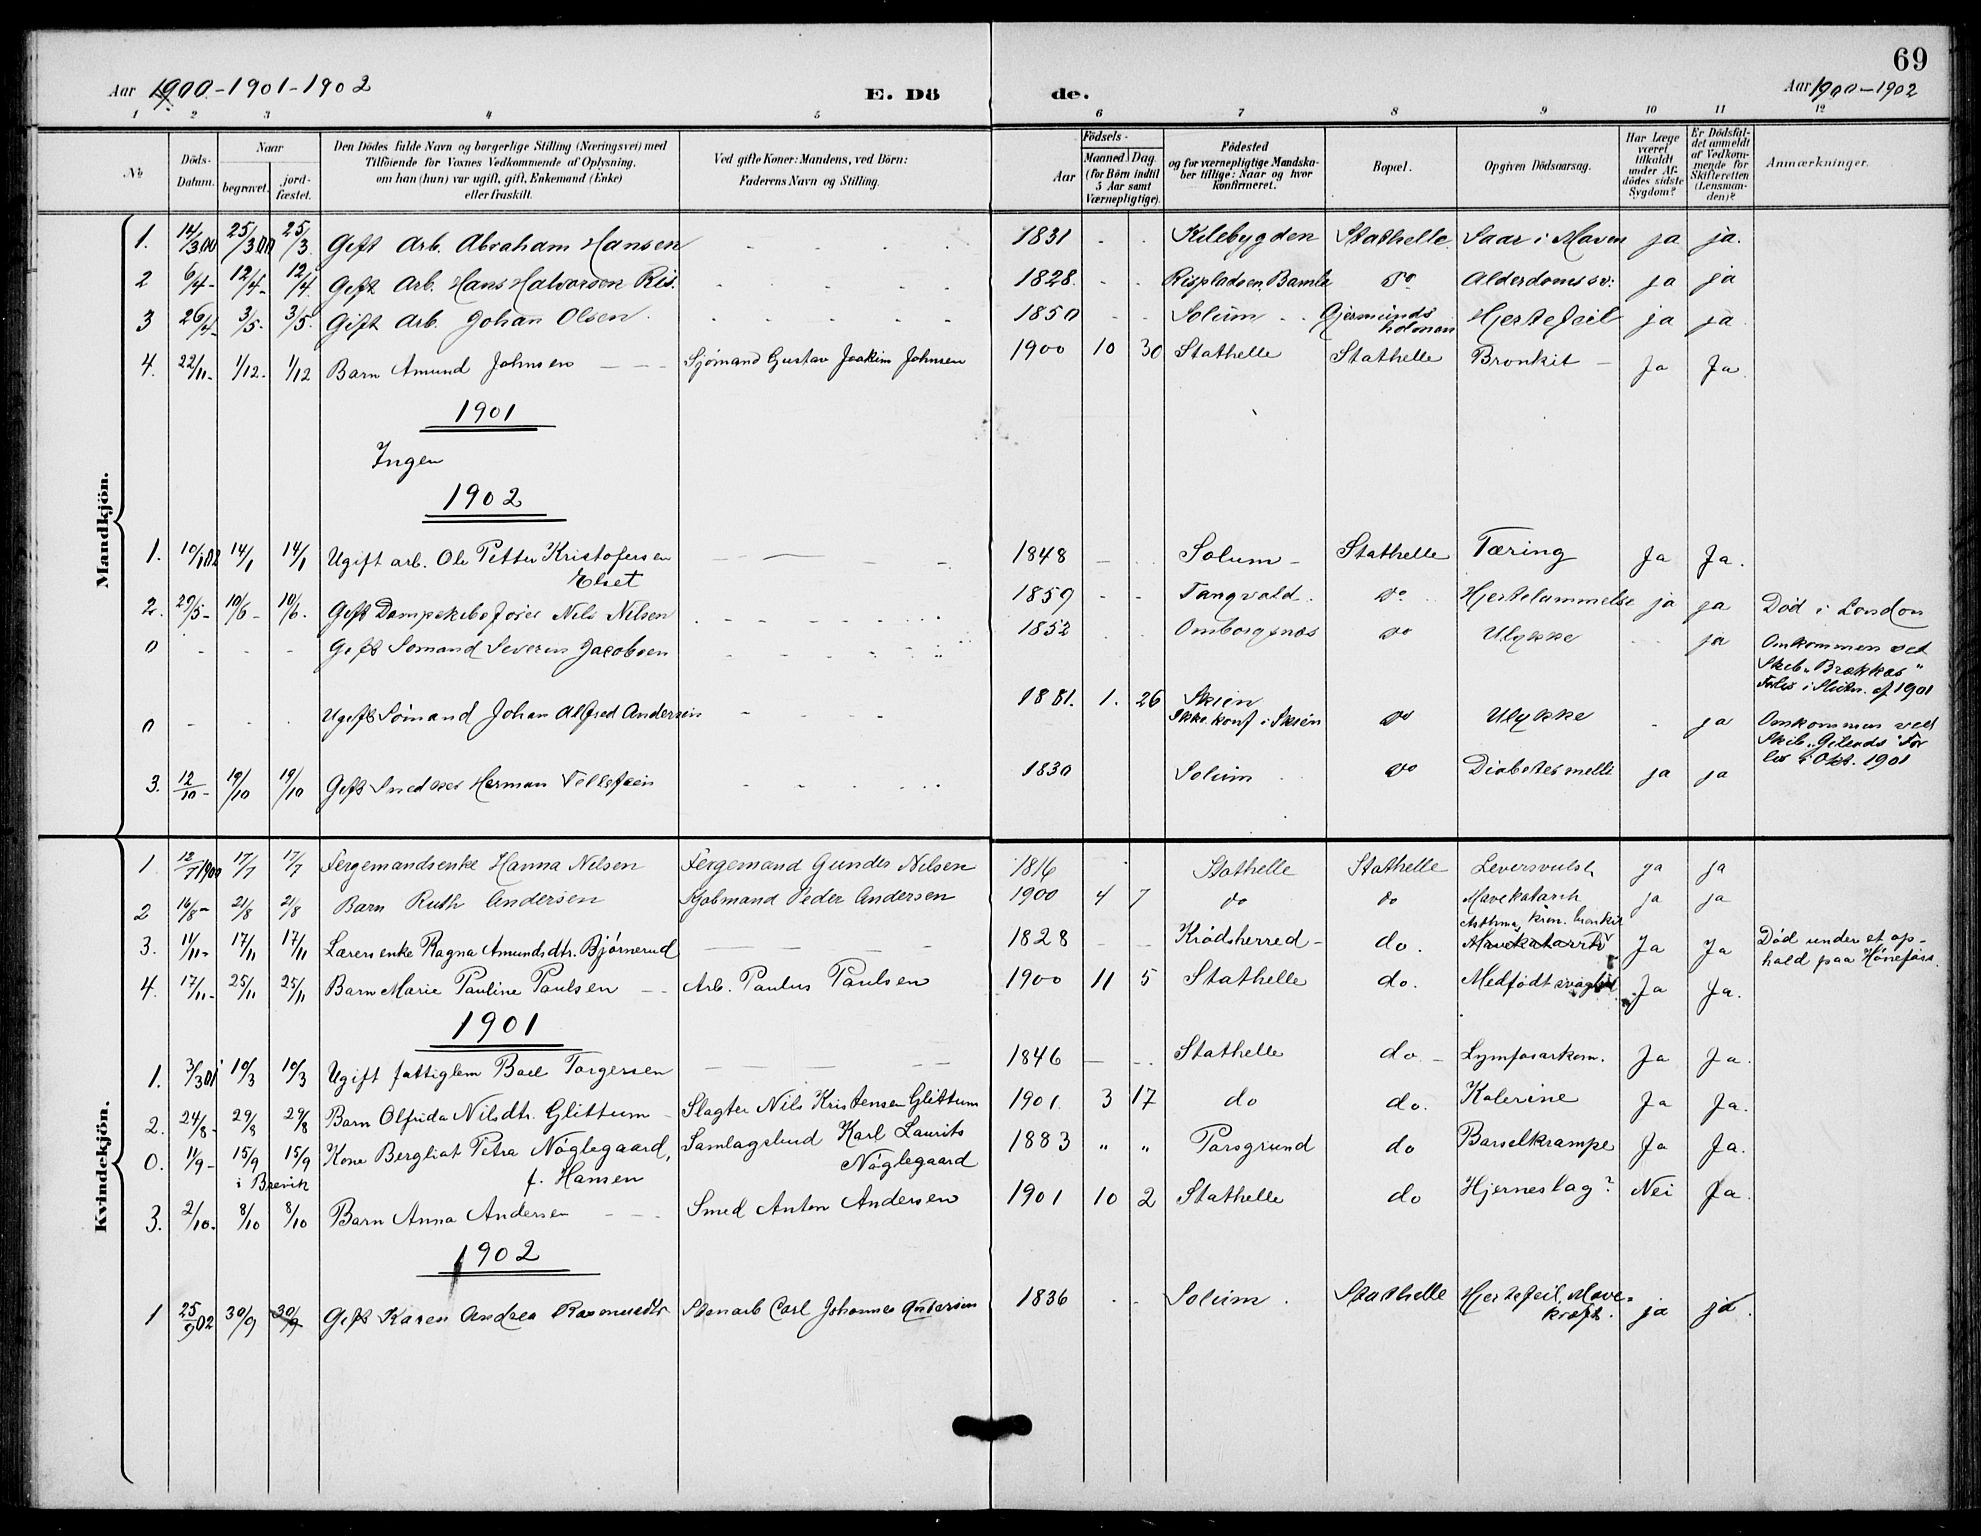 69
Aar 1900-1901-1902 E. Dö de. Aar 1900-1902
1 2 3 4 5 6 7 8 9 10 11 12
№ Döds-Datum. Naar begravet. jordfæstet. Den Dödes fulde Navn og borgerlige Stilling (Næringsvei) med Tilföiende for Voxnes Vedkommende af Oplysning, om han (hun) var ugift, gift, Enkemand (Enke) eller fraskilt. Ved gifte Koner: Mandens, ved Börn: Faderens Navn og Stilling. Födsels- Aar Maaned Dag (for Börn indtil 5 Aar samt Værnepligtige). Födested og for værnepligtige Mandskaber tillige: Naar og hvor konfirmeret. Bopæl. Opgiven Dödsaarsag. Har Læge været tilkaldt under Afdödes sidste Sygdom? Er Dödsfaldet anmeldt af Vedkommende for Skifteretten (Lensmanden)? Anmærkninger.
Mandkjön.
1. 14/3 00 25/3 00 25/3 Gift Arb. Abraham Hansen 1831 Kilebygden Stathelle Saar i Maven ja ja.
2 6/4 - 12/4 - 12/4 Gift Arb. Hans Halvorsen Ris. 1828 Rispladsen Bamle Do Alderdomssv: ja ja
3 26/4 - 3/5 - 3/5. Gift Arb. Johan Olsen. 1850 Solum Gjermunds holmen Hjertefeil ja ja
4. 22/11 - 1/12. 1/12 Barn Amund Johnsen Sjömand Gustav Joakim Johnsen 1900 10 30 Stathelle Stathelle Bronkit Ja Ja.
1901
Ingen
1902
1. 10/1 02 14/1 14/1 Ugift arb. Ole Petter Kristofersen 1848 Solum Stathelle Tæring Ja Ja.
Elset
2. 29/5 - 10/6 - 10/6. Gift Dampskibsförer Nils Nilsen 1859 Tangvald. Do Hjertelammelse ja ja Död i London
0 Gift Sömand Severin Jacobsen 1852 Omborgsnæs do Ulykke ja Omkommen ved
Skib "Brækkas"
Forlis i Slutn. af 1901
0 Ugift Sömand Johan Alfred Andersen 1881. 1. 26 Skien
Ikke konf i Skien do Ulykke ja Omkommen ved
Skib "Gilends" For
lis i Okt. 1901
3. 12/10 - 19/10 19/10 Gift Snedker Herman Tellefsen 1830 Solum do Diabetes melli ja ja
Kvindekjön.
1 12/7 1900 17/7 17/7 Fergemandsenke Hanna Nilsen Fergemand Gunder Nilsen 1816 Stathelle Stathelle Leversvulst ja ja
2 16/8 - 21/8 21/8 Barn Ruth Andersen Kjobmand Peder Andersen 1900 4 7 do do Mavekatarrh ja ja
Asthma, kron. bronkit
3. 11/11 - 17/11 17/11 Lærersenke Ragna Amundsdtr. Bjørnerud 1828 Krödsherred do. Mavekatarrh Ja Ja Död under et op-
hold paa Hönefoss.
4. 17/11 - 25/11 25/11 Barn Marie Pauline Paulsen Arb. Paulus Paulsen 1900 11 5 Stathelle do. Medfödt svaghed Ja Ja.
1901
1. 3/3 01 10/3 10/3 Ugift fattiglem Boel Torgersen 1846 Stathelle do Lymfosarkom. Ja Ja.
2. 24/8 - 29/8 29/8 Barn Olfrida Nilsdtr. Glittum Slagter Nils Kristensen Glittum 1901. 3 17 do do. Kolerine Ja Ja.
0. 11/9 - 15/9 15/9 Kone Bergliot Petra Nöglegaard, Samlagsbud Karl Laurits 1883 " " Porsgrund do Barselkrampe Ja Ja.
i Brevik f. Hansen Nöglegaard
3. 2/10 - 8/10 8/10 Barn Anna Andersen Smed Anton Andersen 1901 10 2 Stathelle do Hjerneslag? Nei Ja
1902
1 25/9 02 30/9 30/9 Gift Karen Andrea Rasmusdtr Stenarb Carl Johannes Andersen 1836 Solum. Stathelle Hjertefeil, Mave-
kræft. ja ja.